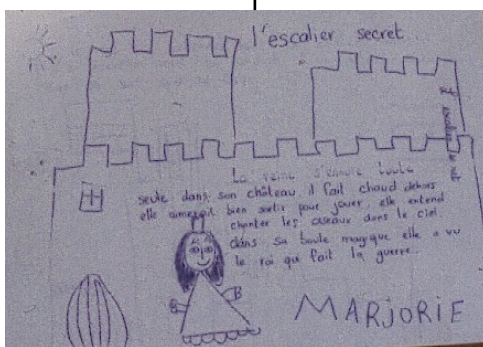 l'escalier secret
La reine s'ennuie toute
seule dans son château il fait chaud dehors
elle aimerait bien sortir pour jouer, elle entend
chanter les oiseaux dans le ciel
dans sa boule magique elle a vu
le roi qui fait la guerre..
MARJORIE